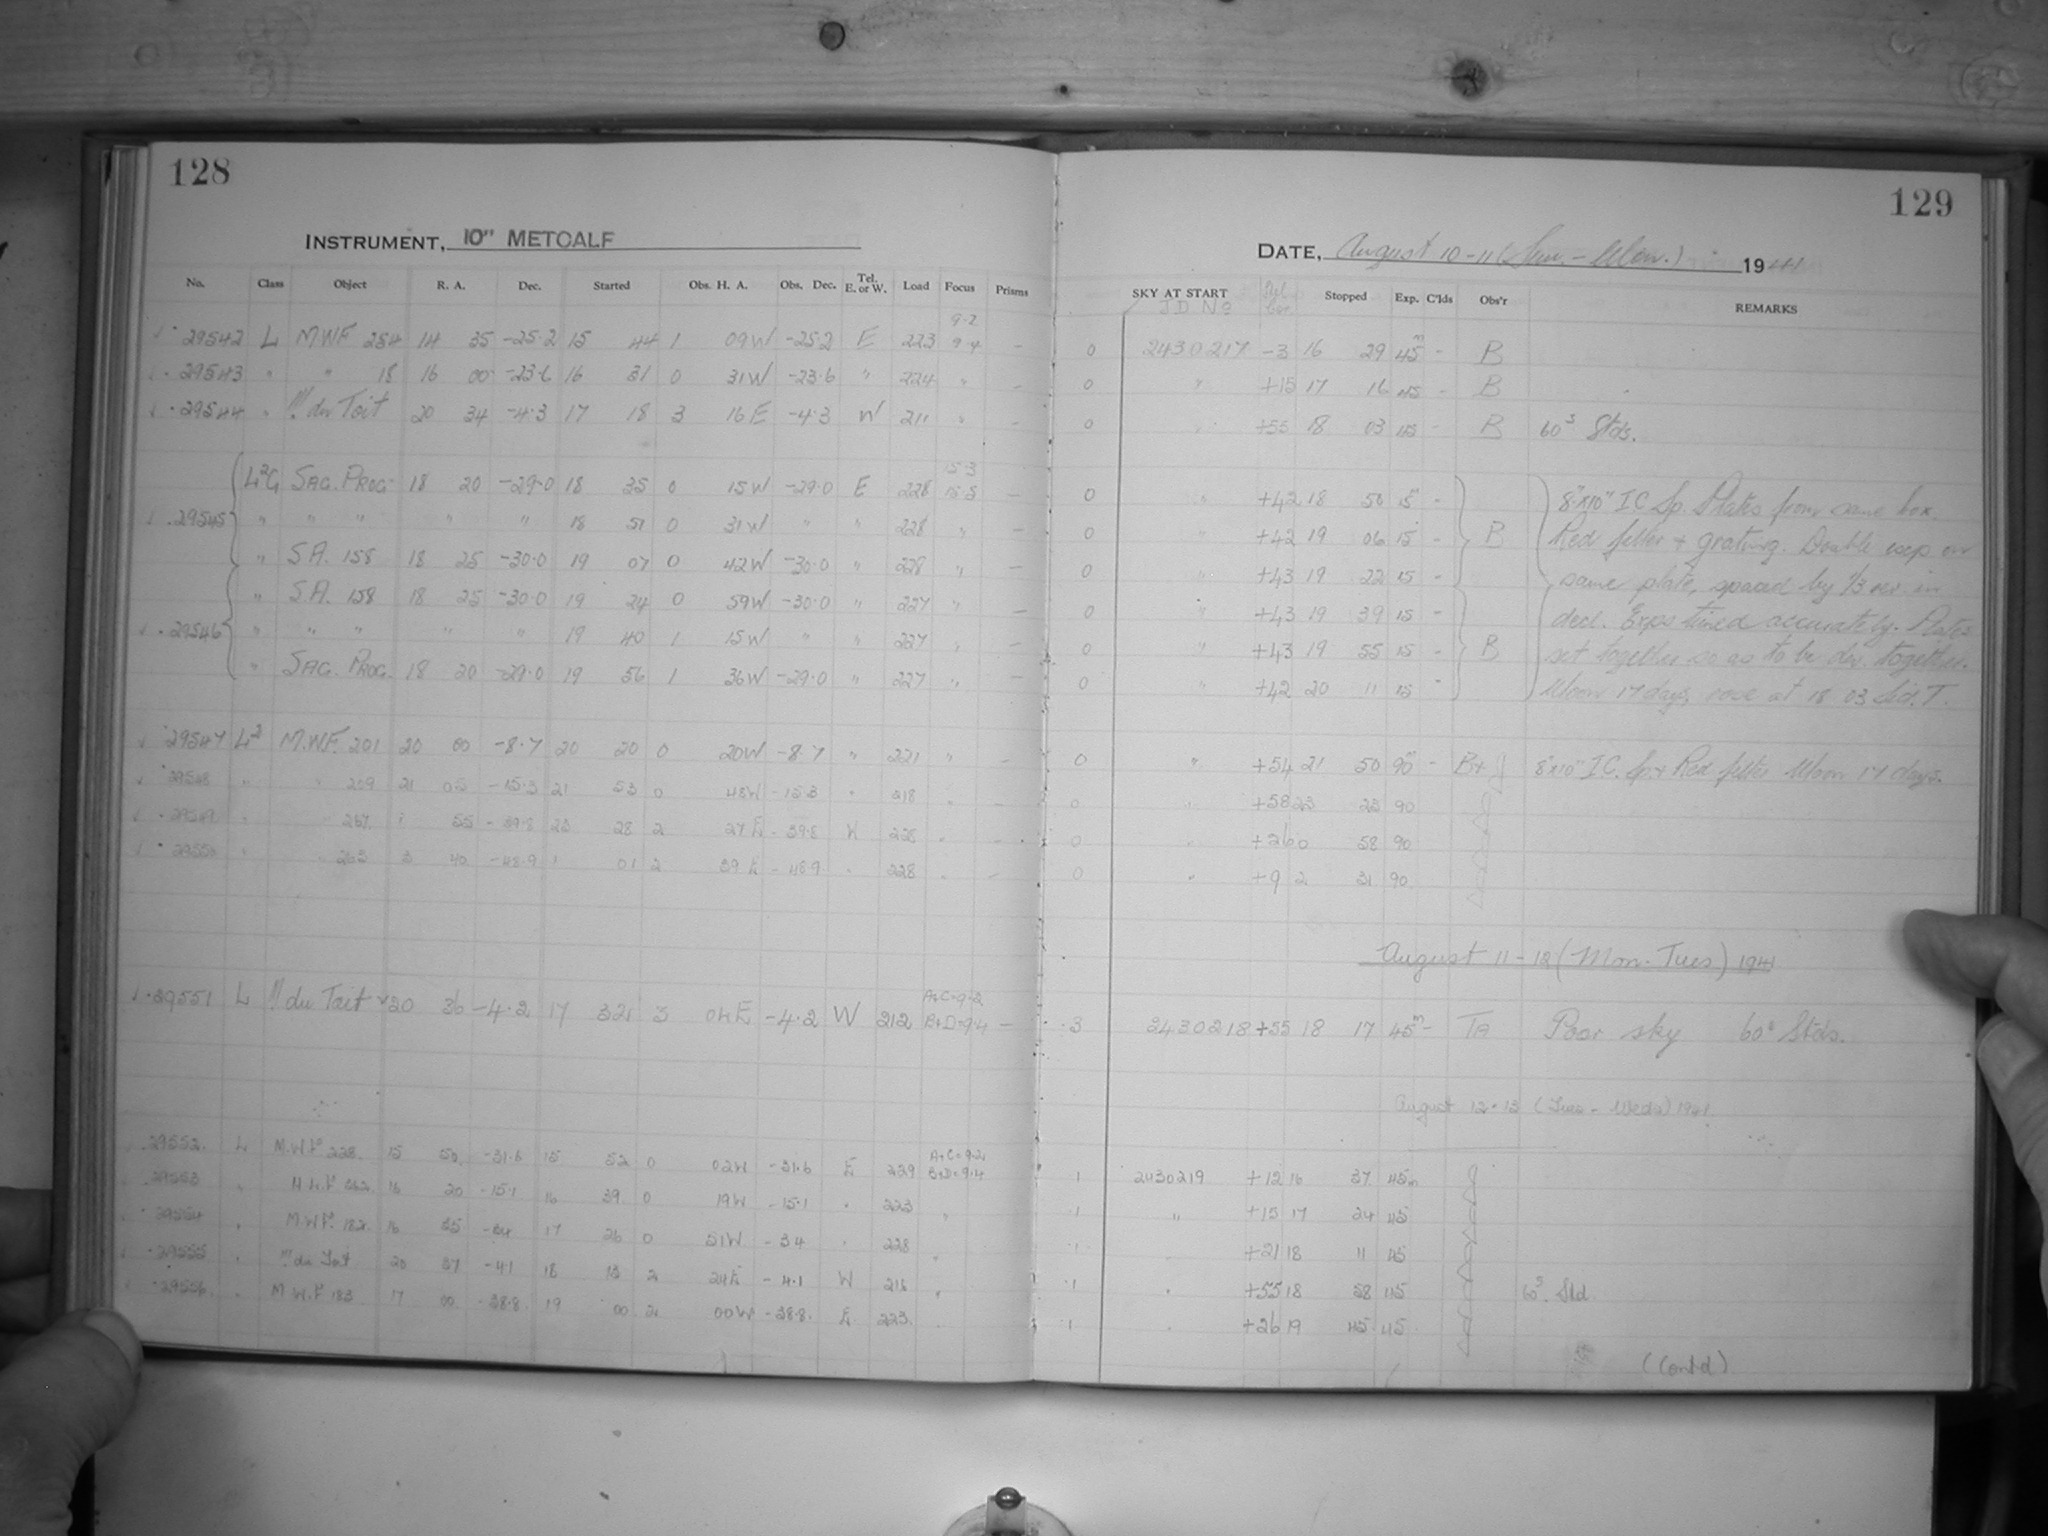 128
INSTRUMENT, 10" METCALF
No. Class Object R. A. Dec. Started Obs. H. A. Obs. Dec. Tel. E. or W. Load Focus Prisms
29542 L M.W.F. 254 14 35 -25.2 15 44 1 09W -25.2 E 223 9.2 9.4 -
29543 " " 18 16 00 -23.6 16 31 0 31W -23.6 " 224 " -
29544 " !!! du Toit 20 34 -4.3 17 18 3 16E -4.3 W 211 " -
L²G SAG. PROG. 18 20 -29.0 18 35 0 15W -29.0 E 228 15.3 15.5 -
29545 " " " " " 18 51 0 31W " " 228 " -
" S.A. 158 18 25 -30.0 19 07 0 42W -30.0 " 228 " -
" S.A. 158 18 25 -30.0 19 24 0 59W -30.0 " 227 " -
29546 " " " " " 19 40 1 15W " " 227 " -
" SAG. PROG. 18 20 -29.0 19 56 1 36W -29.0 " 227 " -
29547 L² M.W.F. 201 20 00 -8.7 20 20 0 20W -8.7 " 221 " -
29548 " " 209 21 05 -15.3 21 53 0 48W -15.3 " 218 " -
29549 " " 267 1 55 -39.8 23 28 2 27E -39.8 W 225 " -
29550 " " 263 3 40 -48.9 1 01 2 39E -48.9 " 228 " -
29551 L !!! du Toit 20 36 -4.2 17 32 3 04E -4.2 W 212 A+C=9.2 B+D=9.4 -
29552 L M.W.F. 228 15 50 -31.6 15 52 0 02W -31.6 E 229 A+C=9.2 B+D=9.4
29553 " 362 16 20 -15.1 16 39 0 19W -15.1 " 223 "
29554 " M.W.F. 182 16 35 -34 17 26 0 51W -34 " 228 "
29555 " !!! du Toit 20 37 -4.1 18 13 2 24E -4.1 W 216 "
29556 " M.W.F. 183 17 00 -38.8 19 00 2 00W -38.8 E 223 "
129
DATE, August 10-11 (Sun.-Mon.) 1941
SKY AT START Stopped Exp. C'lds Obs'r REMARKS
J D No
0 2430217 -3 16 29 45m - B
0 " +15 17 16 45 - B
0 " +55 18 03 45 - B 60s Stds.
0 " +42 18 50 15m -
0 " +42 19 06 15 - B
0 " +43 19 22 15 -
0 " +43 19 39 15 -
0 " +43 19 55 15 - B
0 " +42 20 11 15 -
8"x10" IC Sp. Plates from same box.
Red filter + grating. Double exp on
same plate, spaced by 1/3 rev in
decl. Exps timed accurately. Plates
set together so as to be dev. together.
Moon 17 days, rose at 18 03 Sid. T.
0 " +54 21 50 90m - B+ 8"x10" I.C. Sp + Red filter Moon 17 days.
0 " +58 23 23 90
0 " +26 0 58 90
0 " +9 2 31 90
August 11-12 (Mon-Tues) 1941
3 2430218 +55 18 17 45m - Ta Poor sky 60s Stds.
August 12-13 (Tues - Weds) 1941
1 2430219 +12 16 37 45m
1 " +15 17 24 45
1 " +21 18 11 45
1 " +55 18 58 45 60s Std
1 " +26 19 45 45
(Contd)